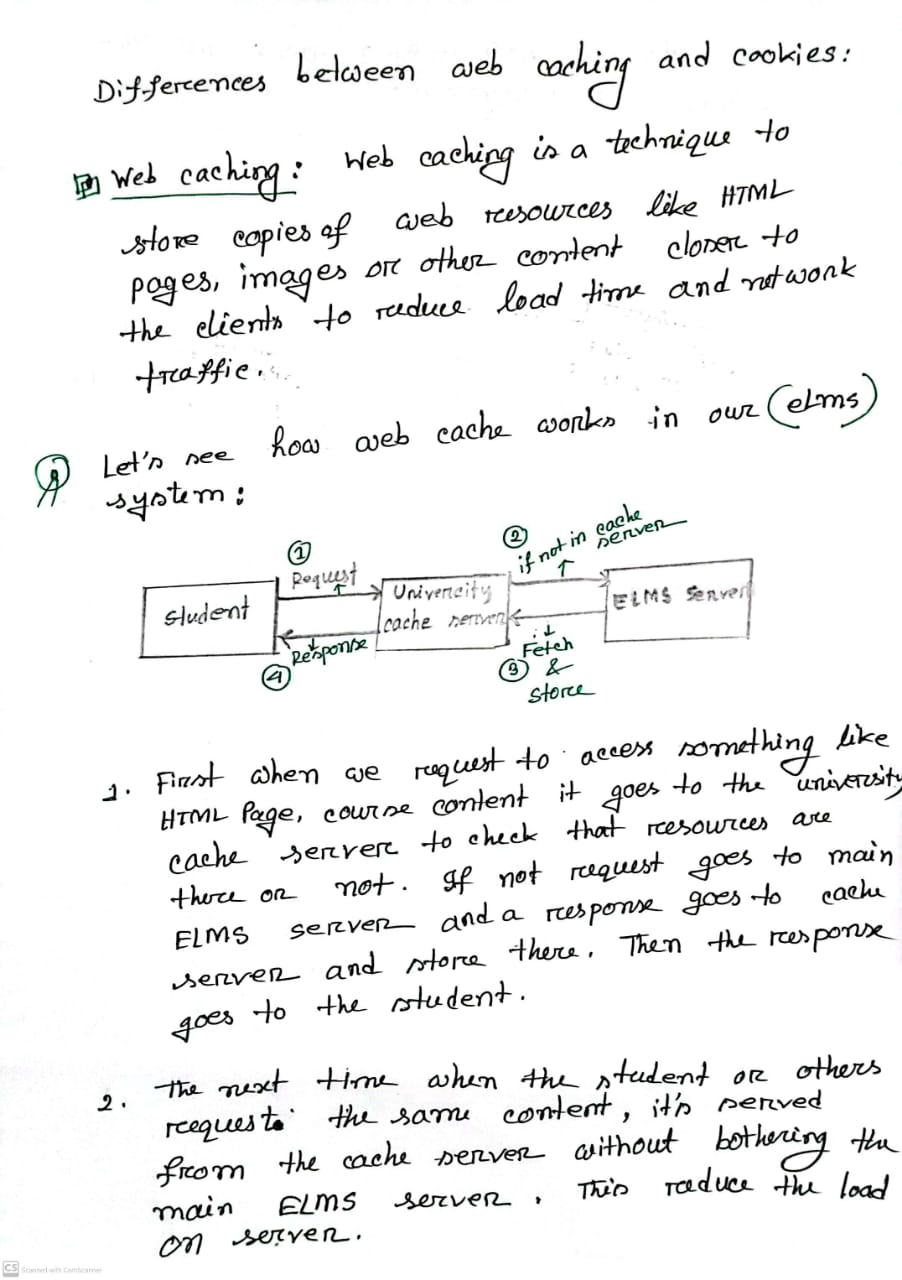 Differences between web caching and cookies:
Web caching: Web caching is a technique to
store copies of web resources like HTML
pages, images or other content closer to
the clients to reduce load time and network
traffic.
Let's see how web cache works in our (eLms)
system:
①
Request
②
if not in cache
server
Student
Univercity
cache server
ELMS Server
④ Response
③ Fetch
&
Store
1. First when we request to access something like
HTML Page, course content it goes to the university
cache server to check that resources are
there or not. If not request goes to main
ELMS server and a response goes to cache
server and store there. Then the response
goes to the student.
2. The next time when the student or others
request the same content, it's served
from the cache server without bothering the
main ELMS server. This reduce the load
on server.
CS Scanned with CamScanner